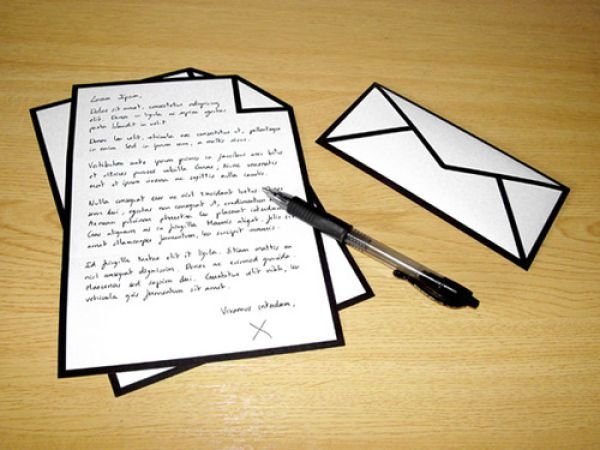 Lorem Ipsum,
Dolor sit amet, consectetur adipiscing
elit. Donec ligula ac sapien egestas
porta blandit in velit.
Donec leo velit, vehicula nec consectetur et, pellentesque
in enim. Sed in ipsum sem, a mollis arcu.
Vestibulum ante ipsum primis in faucibus orci luctus
et ultrices posuere cubilia Curae; Nunc venenatis
nunc at ipsum viverra ac sagittis nulla
Nulla consequat sem ac nisl tincidunt
sem dui, egestas non consequat et, condimentum
Aenean pulvinar pharetra leo placerat interdum.
Cras aliquam mi in fringilla. Mauris aliquet, felis sit
amet ullamcorper fermentum, leo suscipit mauris.
Id fringilla tortor elit et ligula. Etiam mattis on
nisl consequat dignissim. Donec ac euismod gravida.
Maecenas sed sapien dui. Curabitur elit nibh, leo
vehicula quis fermentum sit amet.
Vivamus interdum,
X